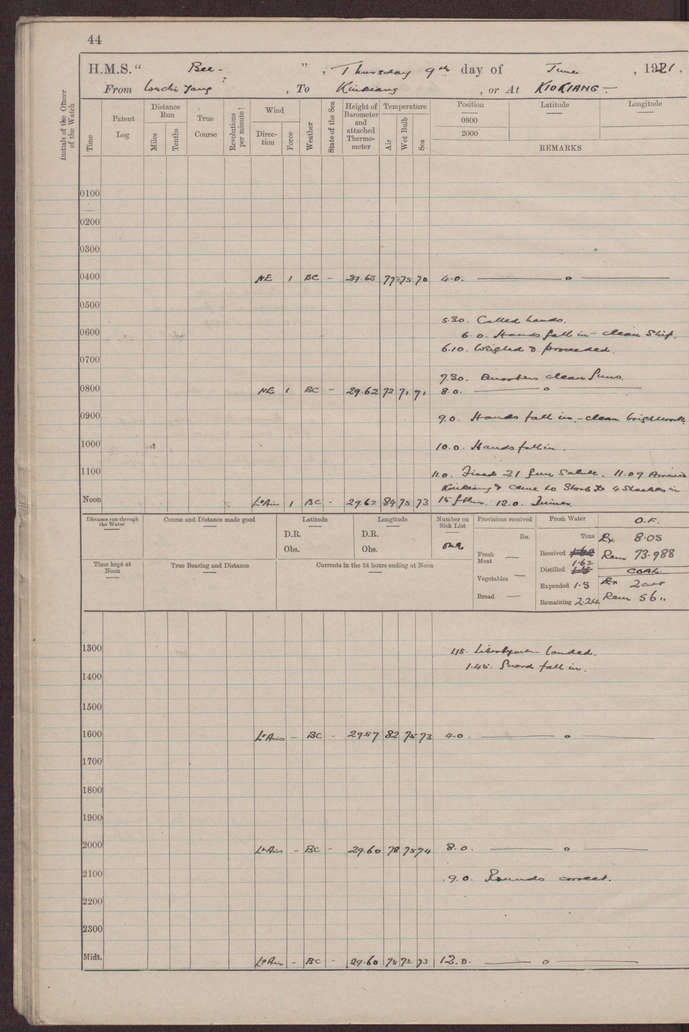 44
H.M.S. " Bee - " , Thursday 9th day of June , 1921.
From , To Kiukiang , or At KIOKIANG -
Initials of the Officer of the Watch
Time
Patent Log
Distance Run
Miles
Tenths
True Course
Revolutions per minute
Wind
Direction
Force
Weather
State of the Sea
Height of Barometer and attached Thermometer
Temperature
Air
Wet Bulb
Sea
Position
0800
2000
Latitude
Longitude
REMARKS
0100
0200
0300
0400 NE 1 BC - 29.62 77 75 70 4.0. — o —
0500
5.30. Called hands.
0600 6.0. Hands fall in - clean Ship.
6.10. Weighed & proceeded.
0700
7.30. Quarters clean Guns.
0800 NE 1 BC - 29.62 72 71 71 8.0. — o —
0900 9.0. Hands fall in - clean brightwork
1000 10.0. Hands fall in.
1100 11.0. Fired 21 Gun Salute. 11.09 Arrived
Kiukiang & came to Starbd 4 Shackles in
Noon Lt Airs 1 BC - 29.62 84 75 73 15 fthms. 12.0. Dinner
Distance run through the Water
Course and Distance made good
Latitude
D.R.
Obs.
Longitude
D.R.
Obs.
Number on Sick List
Provisions received
lbs.
Fresh Meat —
Vegetables —
Bread —
Fresh Water
Tons
Received
Distilled 1.62
Expended 1.5
Remaining 2.24
O.F.
Ex 8.05
Rem 73.988
COAL
Ex
Rem 56 "
Time kept at Noon
True Bearing and Distance
Currents in the 24 hours ending at Noon
1300 115. Libertymen landed.
1.45. Guard fall in.
1400
1500
1600 Lt Airs - BC - 29.57 82 75 73 4.0. — o —
1700
1800
1900
2000 Lt Airs - BC - 29.60 78 75 74 8.0. — o —
2100 9.0. Rounds correct.
2200
2300
Midt. Lt Airs - BC - 29.60 75 72 73 12.0. — o —